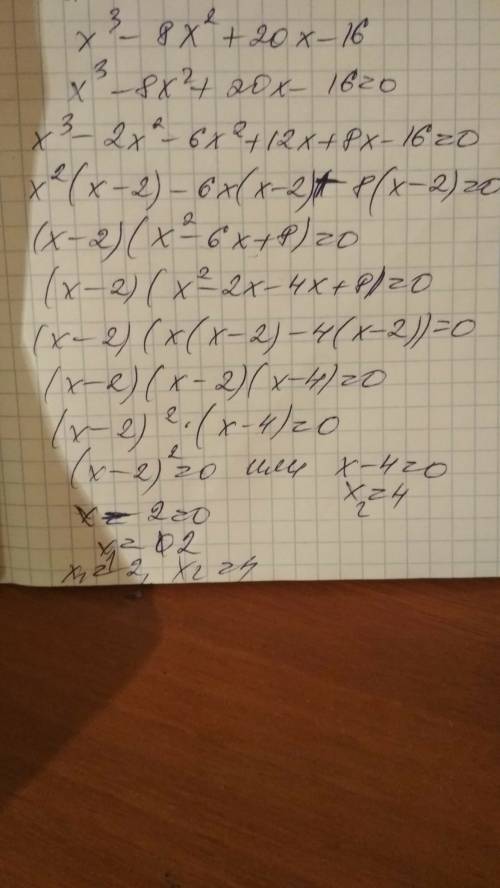 x³ - 8x² + 20x - 16
x³ - 8x² + 20x - 16=0
x³ - 2x² - 6x² + 12x + 8x - 16=0
x²(x-2) - 6x(x-2) + 8(x-2)=0
(x-2)(x² - 6x + 8)=0
(x-2)(x² - 2x - 4x + 8)=0
(x-2)(x(x-2) - 4(x-2))=0
(x-2)(x-2)(x-4)=0
(x-2)²·(x-4)=0
(x-2)²=0 или x-4=0
x₂=4
x - 2=0
x₁=2
x₁=2, x₂=4